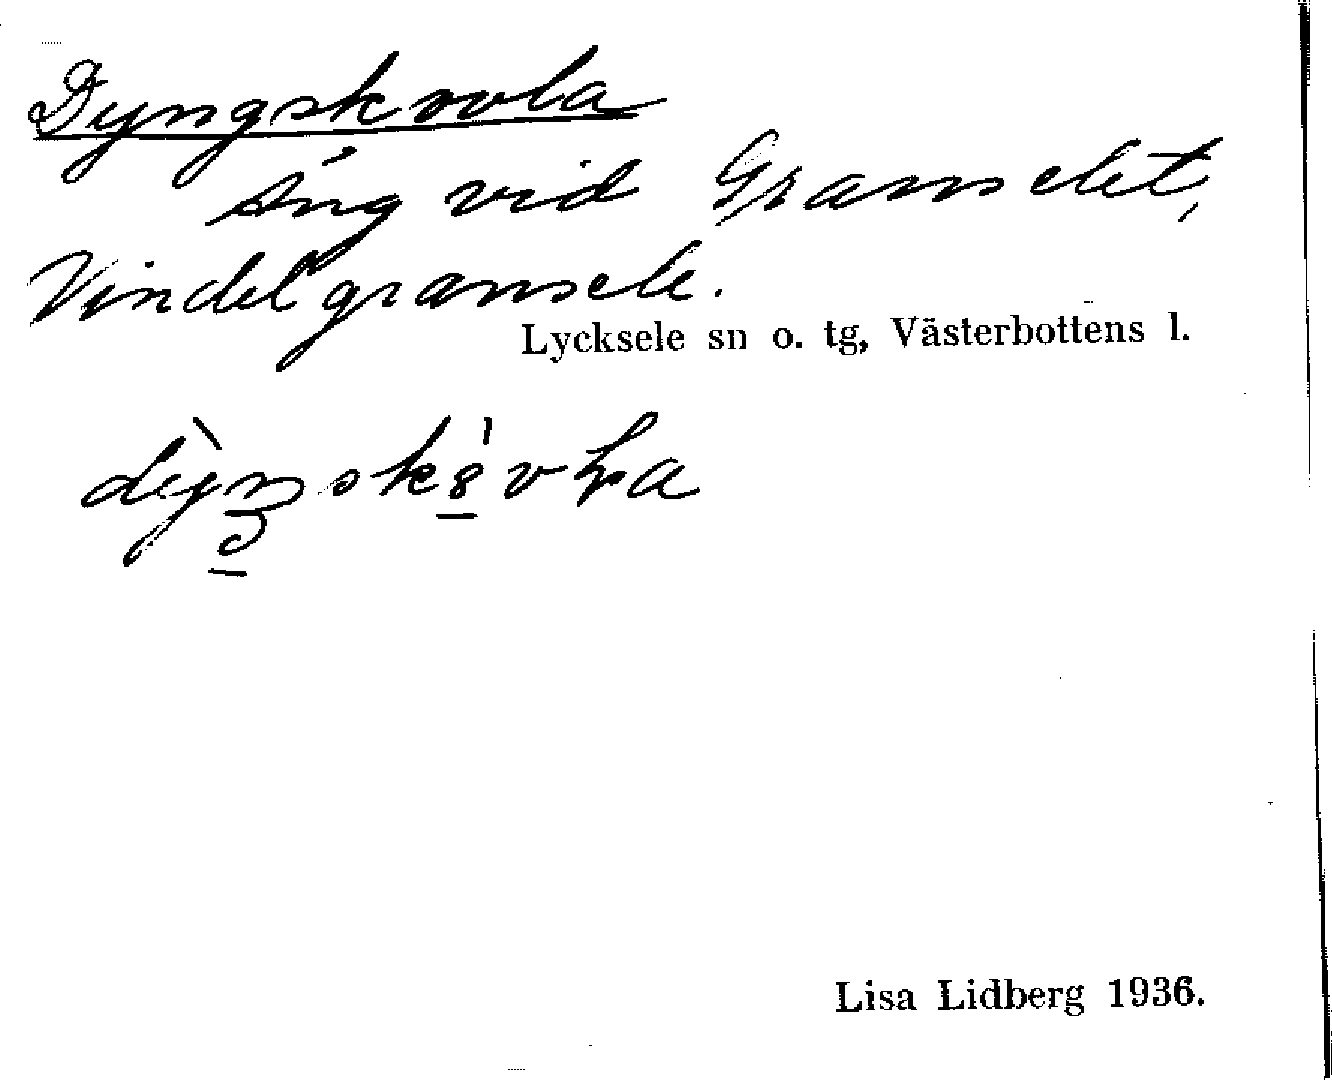 Dyngskovla
Äng vid Granselet,
Vindelgransele.
Lycksele sn o. tg, Västerbottens l.
Lisa Lidberg 1936.